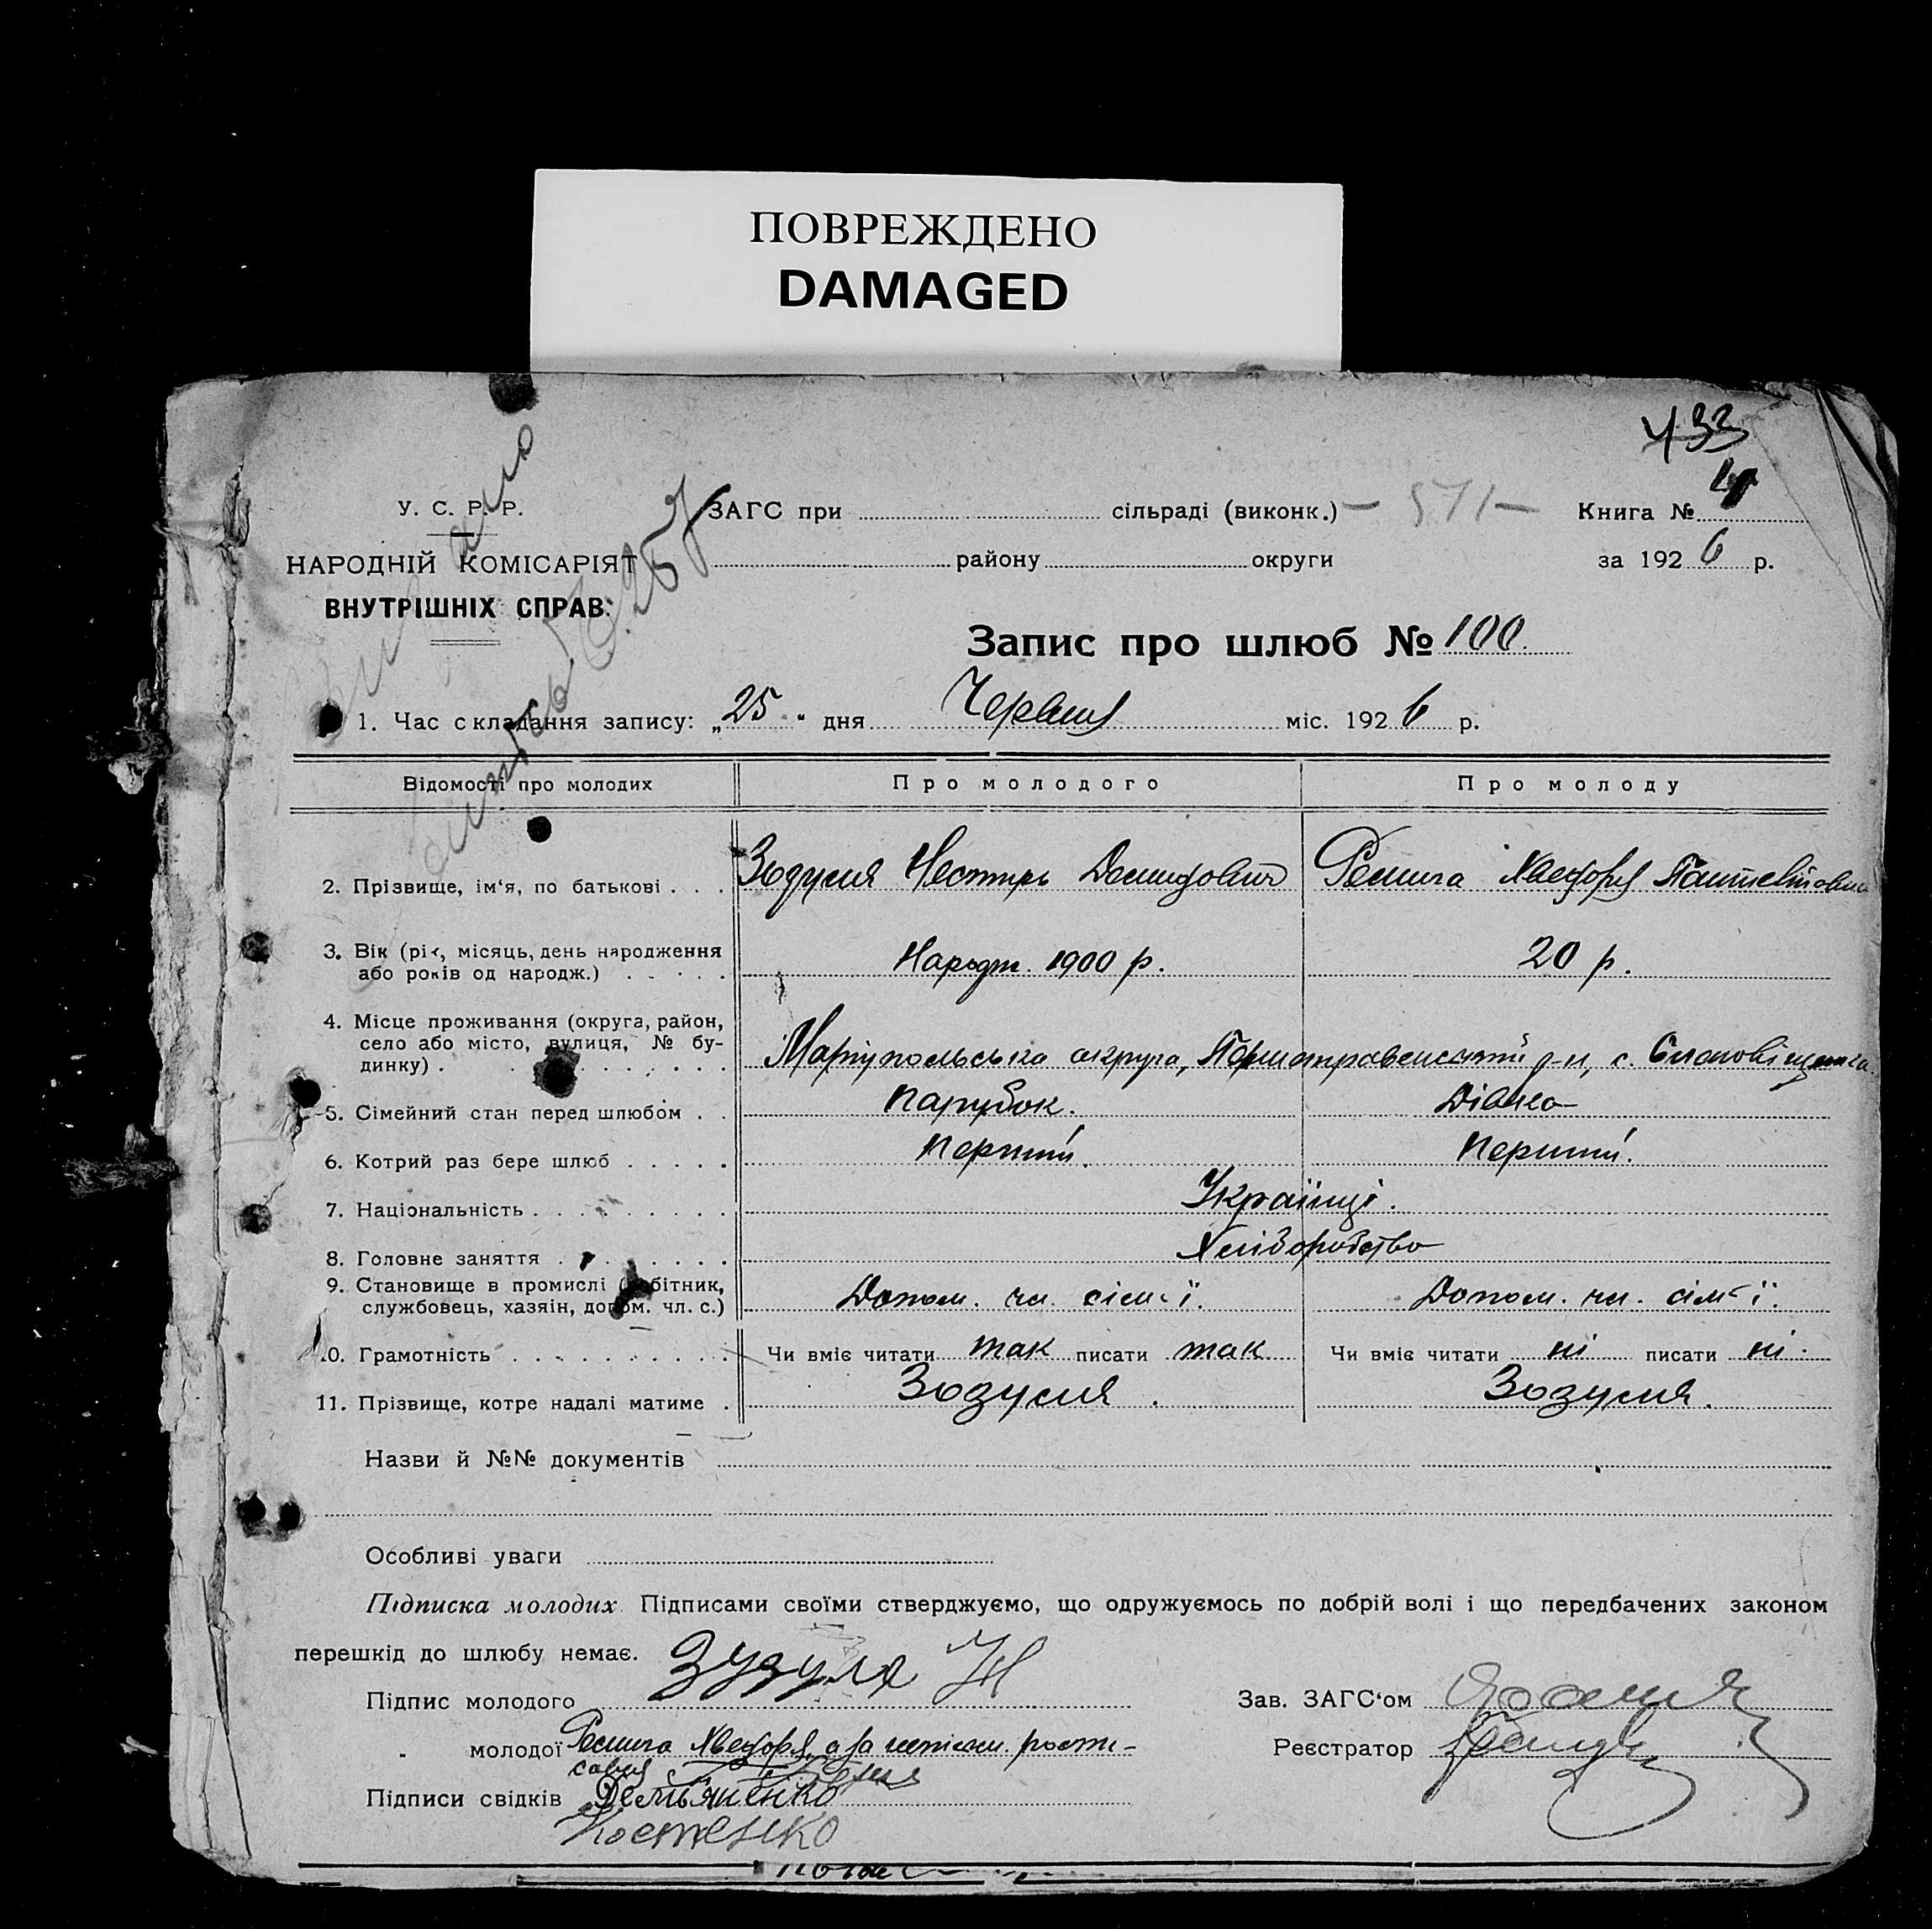 ПОВРЕЖДЕНО
DAMAGED
433
У. С. Р. Р.
ЗАГС при сільраді (виконк.) — 571 — Книга №
НАРОДНІЙ КОМІСАРІЯТ
району округи за 1926 р.
ВНУТРІШНІХ СПРАВ.
Запис про шлюб № 100
1. Час складання запису: „25" дня Червня міс. 1926 р.
Відомості про молодих Про молодого Про молоду
2. Прізвище, ім'я, по батькові . . . Зозуля Нестирь Демидович Ремига Хведоря
3. Вік (рік, місяць, день народження
або років од народж.) . . . . . Народж. 1900 р. 20 р.
4. Місце проживання (округа, район,
село або місто, вулиця, № бу-
динку) . . . . . . . . . . Маріупольська округа, Першотравенський р-н, с.
5. Сімейний стан перед шлюбом . . Парубок. Дівка
6. Котрий раз бере шлюб . . . . . Перший. Перший.
7. Національність . . . . . . . . . Українці.
8. Головне заняття . . . . . . . . Хліборобство
9. Становище в промислі (робітник,
службовець, хазяїн, допом. чл. с.) Допом. чл. сім'ї. Допом. чл. сім'ї.
10. Грамотність . . . . . . . . . . Чи вміє читати так писати так Чи вміє читати ні писати ні.
11. Прізвище, котре надалі матиме . Зозуля. Зозуля.
Назви й №№ документів
Особливі уваги
Підписка молодих Підписами своїми стверджуємо, що одружуємось по добрій волі і що передбачених законом
перешкід до шлюбу немає.
Підпис молодого Зузуля Н Зав. ЗАГС'ом
" молодої Ремига Хведоря, а за неписьм. розпи-
сався Реєстратор
Підписи свідків Демьяненко
Костенко